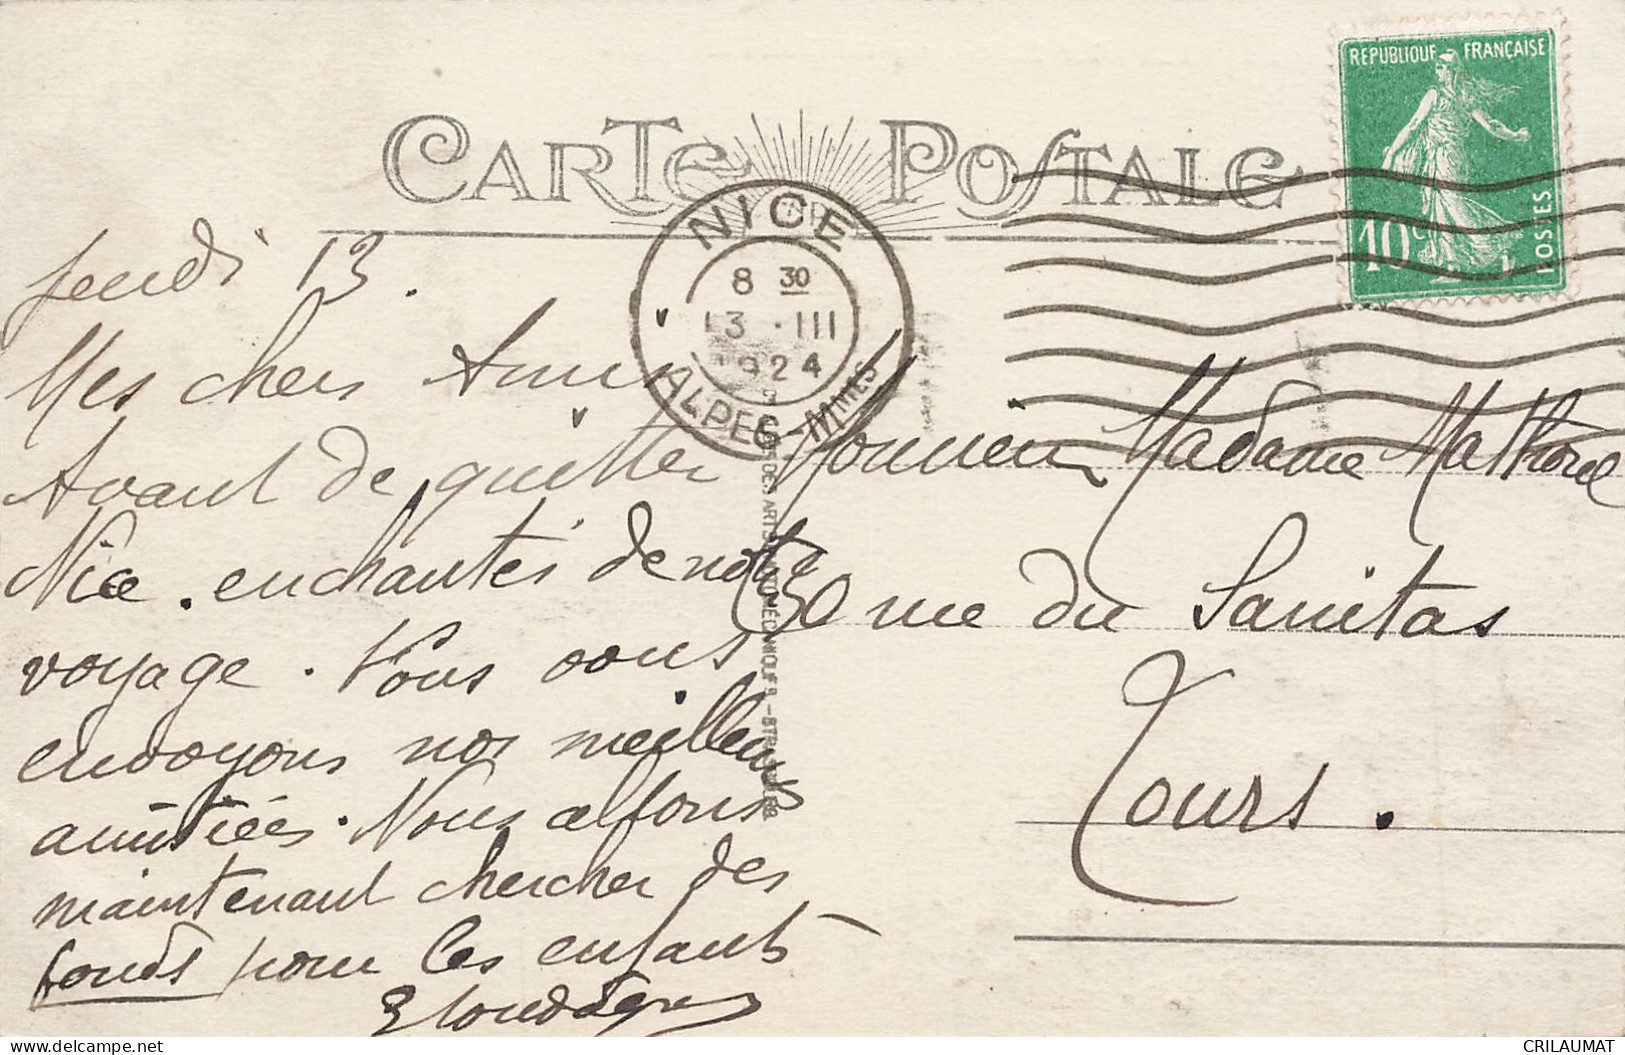 CARTE POSTALE
REPUBLIQUE FRANÇAISE
10c
POSTES
NICE
8 30
13 · III
1924
ALPES-Mmes
Jeudi 13.
Mes chers Amis
Avant de quitter
Nice. enchantés de notre
voyage. Nous vous
envoyons nos meilleures
amitiés. Nous allons
maintenant chercher des
fonds pour les enfants
Monsieur Madame Mathorel
30 rue du Sanitas
Tours.
delcampe.net
CRILAUMAT